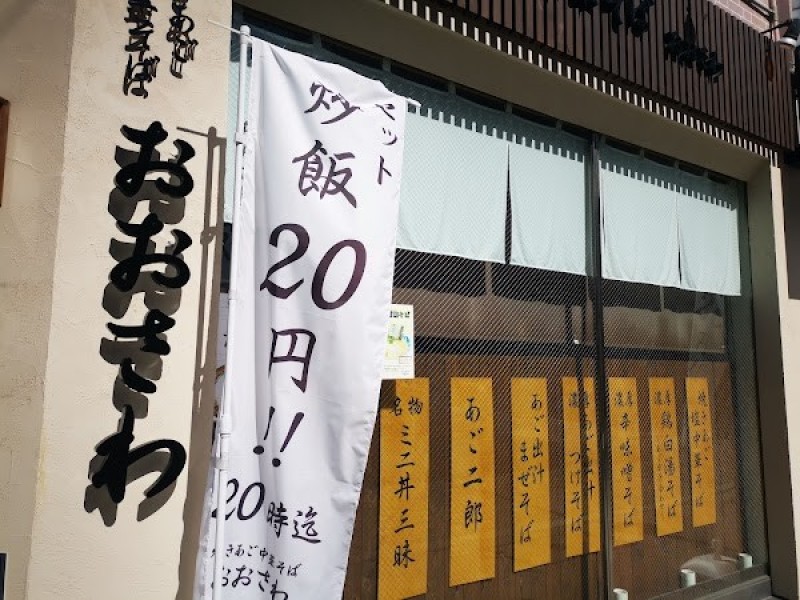 きあご
華そば
おおさわ
セット
炒飯20円!!
20時迄
きあご中華そば
おおさわ
焼きあご
塩中華そば
濃厚
鶏白湯そば
濃厚
辛味噌そば
濃
あご出汁
つけそば
あご出汁
まぜそば
あご二郎
名物
ミニ丼三昧